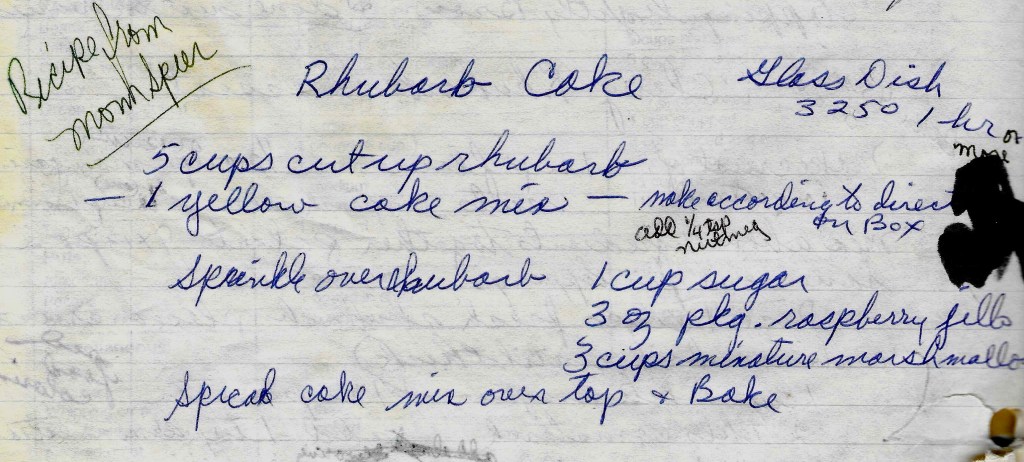 Recipe from
Mom Spier
Rhubarb Cake
Glass Dish
3250 1 hr or
more
5 cups cut up rhubarb
— 1 yellow cake mix — make according to direct
on Box
add 1/4 tsp
nutmeg
Sprinkle over rhubarb 1 cup sugar
3 oz pkg. raspberry jello
3 cups minature marshmallo
Spread cake mix over top & Bake